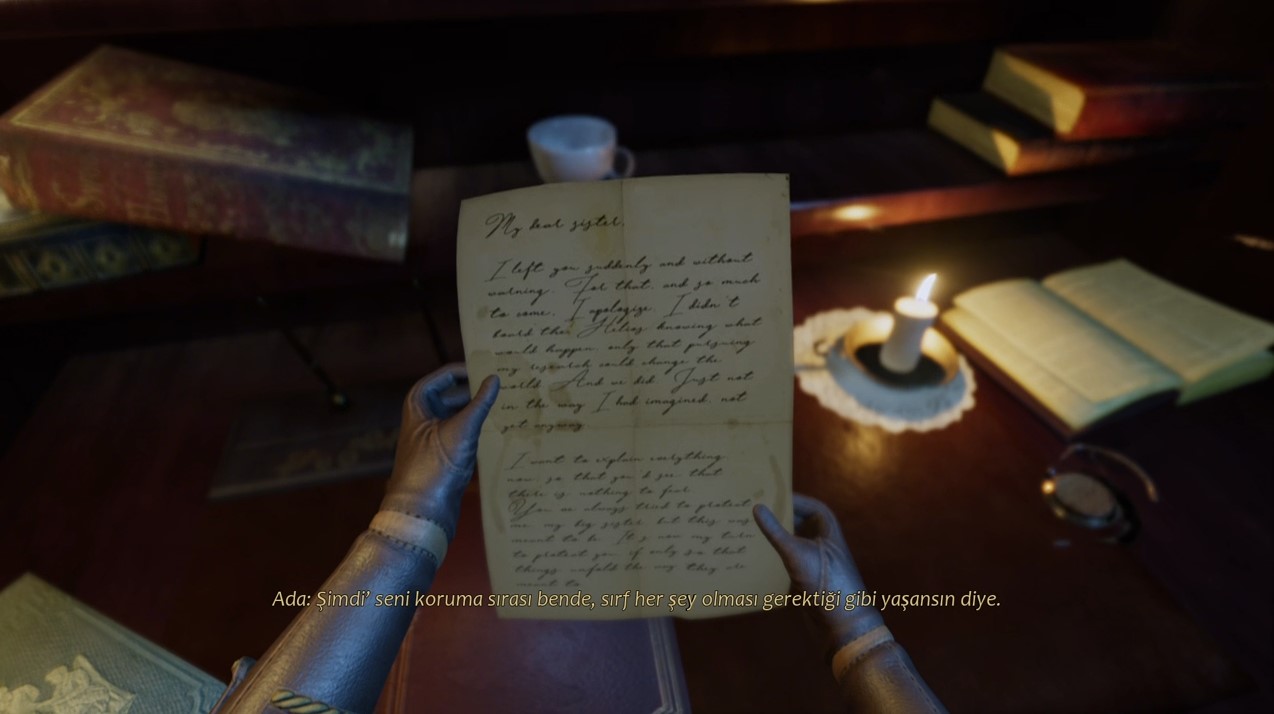 My dear sister,
I left you suddenly and without
warning. For that, and so much
to come, I apologize. I didn't
board the Helios knowing what
would happen, only that pursuing
my research could change the
world. And we did. Just not
in the way I had imagined, not
yet anyway.
I want to explain everything
now, so that you'd see that
there is nothing to fear.
You've always tried to protect
me, my big sister, but this was
meant to be. It's now my turn
to protect you, if only so that
things unfold the way they are
meant to.
Ada: Şimdi' seni koruma sırası bende, sırf her şey olması gerektiği gibi yaşansın diye.